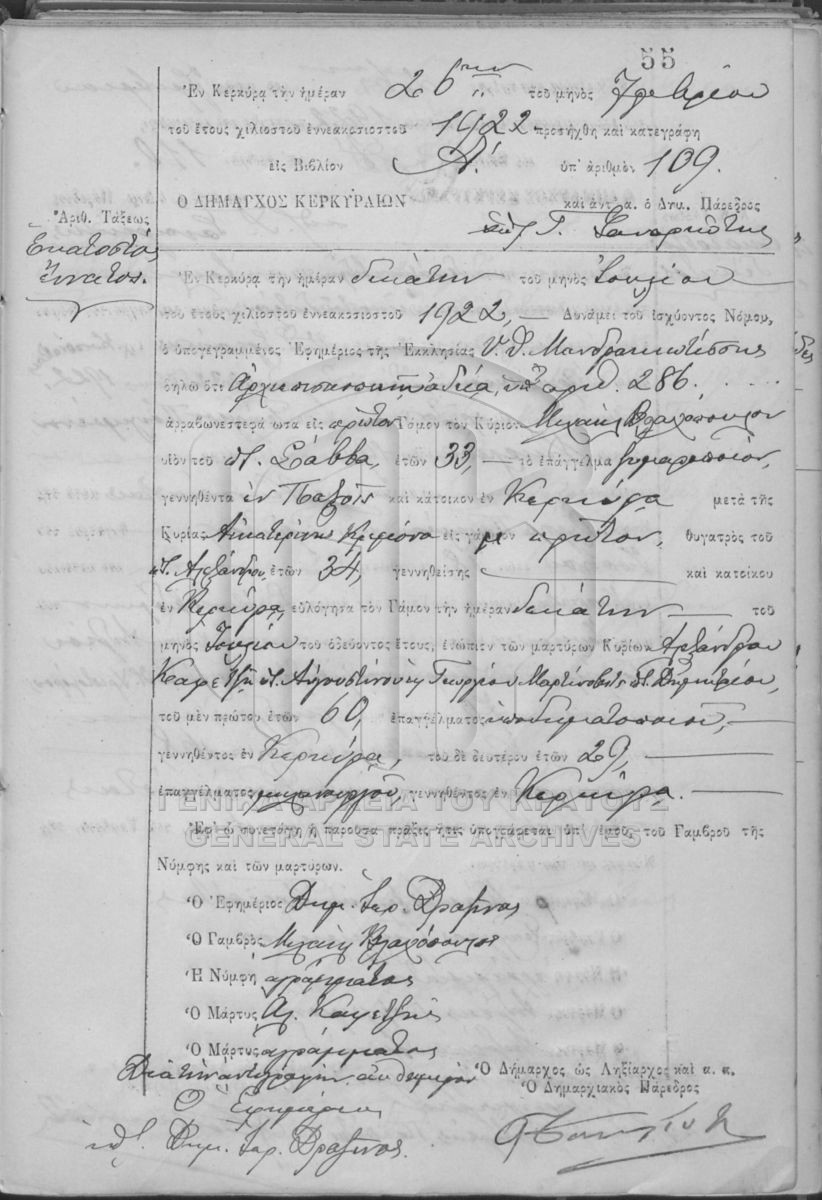 55
Ἐν Κερκύρᾳ τὴν ἡμέραν 26ην τοῦ μηνὸς
τοῦ ἔτους χιλιοστοῦ ἐννεακοσιοστοῦ 1922 προσήχθη καὶ κατεγράφη
εἰς Βιβλίον Α΄. ὑπ' ἀριθμὸν 109.
Ο ΔΗΜΑΡΧΟΣ ΚΕΡΚΥΡΑΙΩΝ καὶ ἀντ' α. ὁ Δημ. Πάρεδρος
Ἀριθ. Τάξεως
Ἑκατοστὸς
Ἔννατος.
Ἐν Κερκύρᾳ τὴν ἡμέραν δεκάτην τοῦ μηνὸς Ἰουλίου
τοῦ ἔτους χιλιοστοῦ ἐννεακοσιοστοῦ 1922, — Δυνάμει τοῦ ἰσχύοντος Νόμου,
ὁ ὑπογεγραμμένος Ἐφημέριος τῆς Ἐκκλησίας Υ. Θ. Μανδρακιωτίσσης
δηλῶ ὅτι Ἀρχιεπισκοπικῇ ἀδείᾳ, ὑπ' ἀριθ. 286.
ἀρραβωνεστεφάνωσα εἰς πρῶτον Γάμον τὸν Κύριον Μιχαὴλ Βλαχόπουλον
υἱὸν τοῦ Σάββα, ἐτῶν 33, — τὸ ἐπάγγελμα ζυμαροποιόν,
γεννηθέντα ἐν Παξοῖς καὶ κάτοικον ἐν Κερκύρᾳ μετὰ τῆς
Κυρίας Αἰκατερίνης εἰς γάμον πρῶτον, θυγατρὸς τοῦ
Ἀλεξάνδρου, ἐτῶν 34, γεννηθείσης — καὶ κατοίκου
ἐν Κερκύρᾳ, εὐλόγησα τὸν Γάμον τὴν ἡμέραν δεκάτην — τοῦ
μηνὸς Ἰουλίου τοῦ ὁδεύοντος ἔτους, ἐνώπιον τῶν μαρτύρων Κυρίων Ἀλεξάνδρου
Καφετζῆ Αὐγουστίνου καὶ Γεωργίου Δημητρίου,
τοῦ μὲν πρώτου ἐτῶν 60, ἐπαγγέλματος ὑποδηματοποιοῦ, —
γεννηθέντος ἐν Κερκύρᾳ, τοῦ δὲ δευτέρου ἐτῶν 29, —
ἐπαγγέλματος γεννηθέντος ἐν Κερκύρᾳ. —
ΓΕΝΙΚΑ ΑΡΧΕΙΑ ΤΟΥ ΚΡΑΤΟΥΣ
GENERAL STATE ARCHIVES
Ἐφ' ᾧ συνετάγη ἡ παροῦσα πρᾶξις ἥτις ὑπογράφεται ὑπ' ἐμοῦ, τοῦ Γαμβροῦ τῆς
Νύμφης καὶ τῶν μαρτύρων.
Ὁ Ἐφημέριος Δημ. Ἱερ.
Ὁ Γαμβρὸς Μιχαὴλ Βλαχόπουλος
Ἡ Νύμφη ἀγράμματος
Ὁ Μάρτυς Αλ. Καφετζῆς
Ὁ Μάρτυς ἀγράμματος
Διὰ τὴν ἀντιγραφὴν αὐθημερόν
Ὁ Δήμαρχος ὡς Ληξίαρχος καὶ α. α.
Ὁ Δημαρχιακὸς Πάρεδρος
Ὁ Ἐφημέριος
Δημ. Ἱερ.